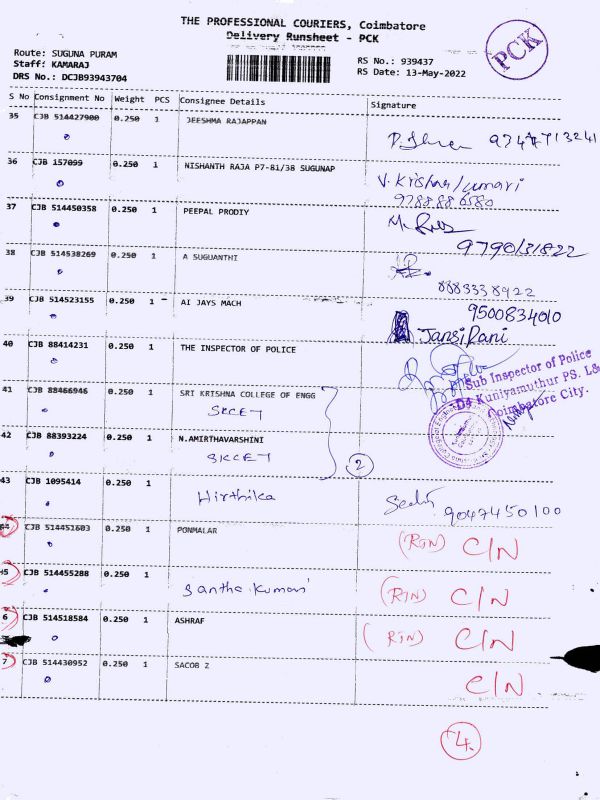 THE PROFESSIONAL COURIERS, Coimbatore
Delivery Runsheet - PCK
PCK
Route: SUGUNA PURAM
Staff: KAMARAJ
DRS No.: DCJB93943704
RS No.: 939437
RS Date: 13-May-2022
S No Consignment No Weight PCS Consignee Details Signature
35 CJB 514427900 0.250 1 JEESHMA RAJAPPAN
36 CJB 157099 0.250 1 NISHANTH RAJA P7-81/38 SUGUNAP
V. Krishna kumari
37 CJB 514450358 0.250 1 PEEPAL PRODIY
9790131822
38 CJB 514538269 0.250 1 A SUGUANTHI
8883338922
39 CJB 514523155 0.250 1 AI JAYS MACH 9500834010
Jansi Rani
40 CJB 88414231 0.250 1 THE INSPECTOR OF POLICE
Sub Inspector of Police
D4 Kuniyamuthur PS. L&
Coimbatore City.
41 CJB 88466946 0.250 1 SRI KRISHNA COLLEGE OF ENGG
SKCET
42 CJB 88393224 0.250 1 N.AMIRTHAVARSHINI
SKCET
2
43 CJB 1095414 0.250 1 Hirthika 9047450100
44 CJB 514451603 0.250 1 PONMALAR (RTN) C/N
45 CJB 514455288 0.250 1 Santha kumari (RTN) C/N
6 CJB 514518584 0.250 1 ASHRAF (RTN) C/N
7 CJB 514430952 0.250 1 SACOB Z C/N
+4.